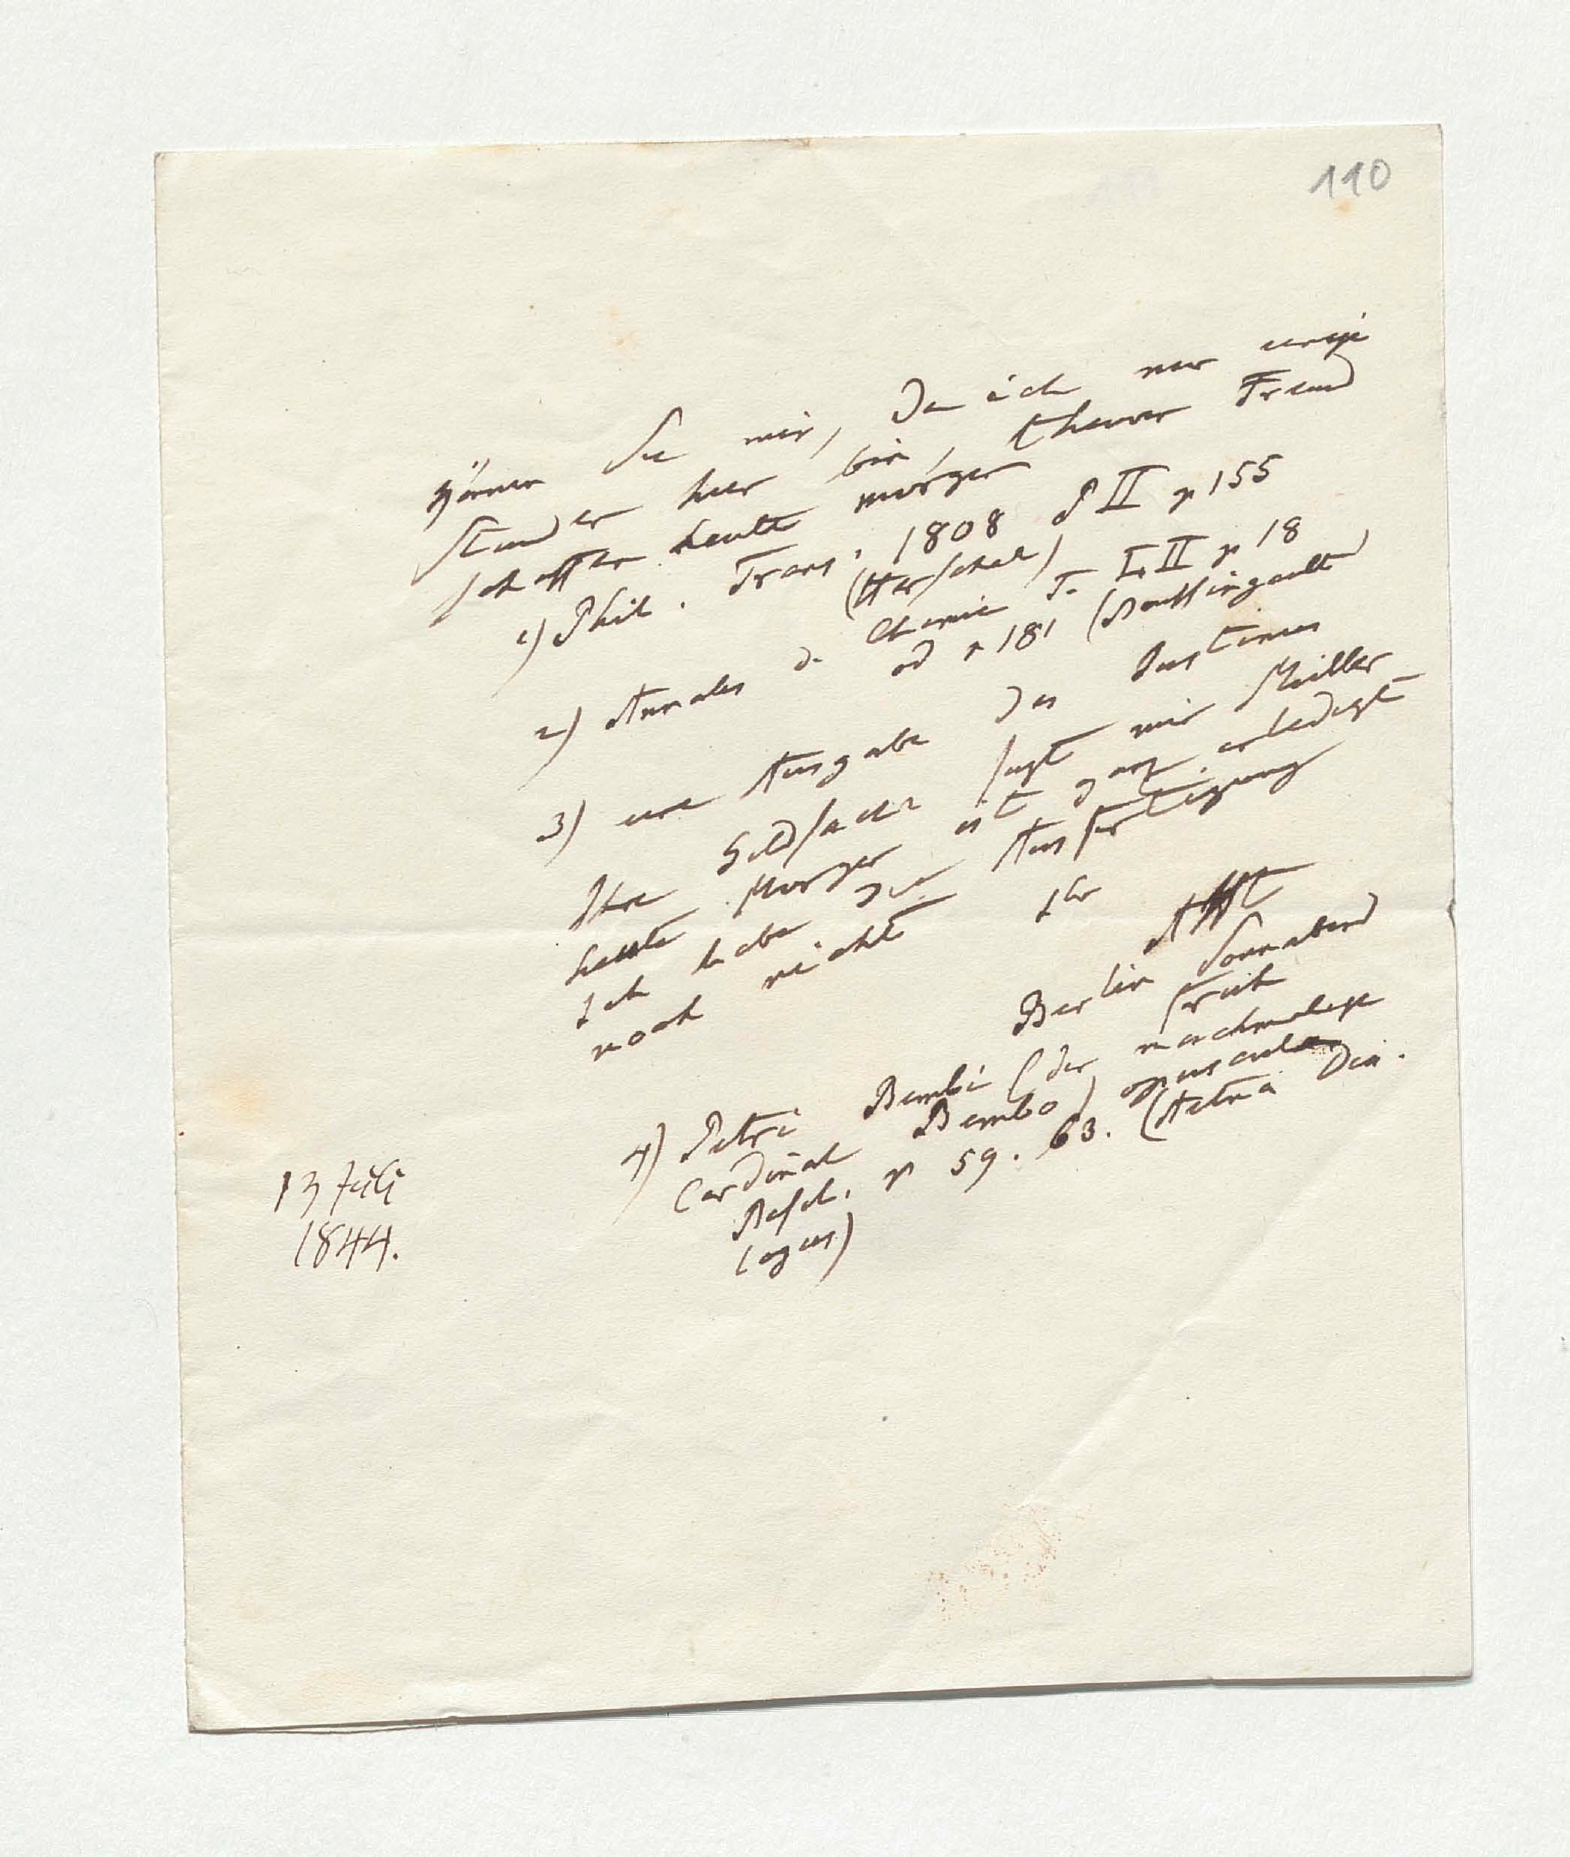 110
Können Sie mir, da ich nur wenige
Stunden hier bin, theurer Freund
schaffen heute morgen
1) Phil. Trans. 1808 P II p 155
(Herschel)
2) Annales de Chemie T. LII p 18
od p 181 (Boussingault)
3) eine Ausgabe des Justinus
Ihre Geldsache sagt mir Müller
heute Morgen ist ganz erledigt
Ich habe die Ausfertigung
noch nicht
Ihr
AHt
Berlin Sonnabend
früh
4) Petri Bembi (der nachmalige
Cardinal Bembo) opuscula
Basil. p 59. 63. (Aetna Dia-
logus)
13 Juli
1844.